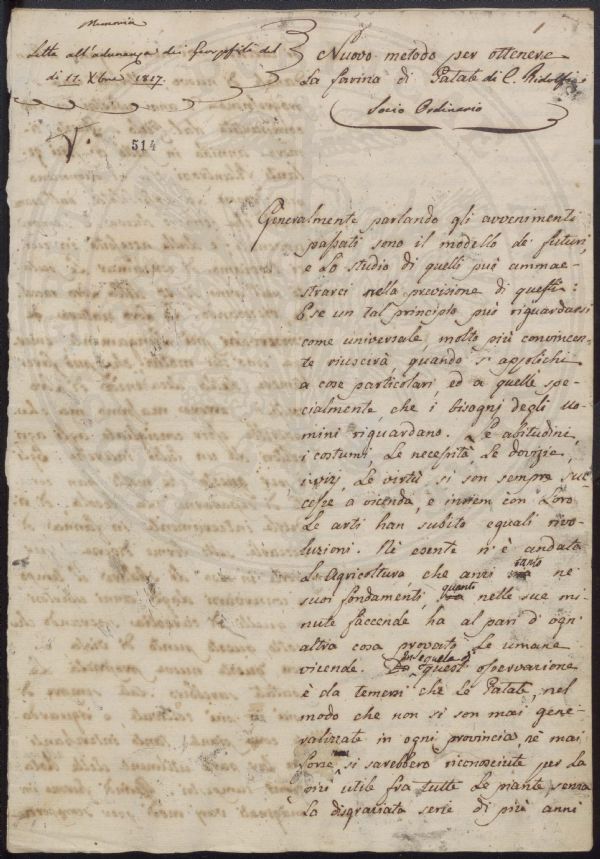 Memoria
Letta all'adunanza dei Georgofili del
di 11. Xbre 1817.
V.
514
1
Nuovo metodo per ottenere
La farina di Patate di C. Ridolfi
Socio Ordinario
Generalmente parlando gli avvenimenti
passati sono il modello de' futuri,
e Lo studio di quelli può ammae-
strarci nella previsione di questi:
E se un tal principio può riguardarsi
come universale, molto più convincen-
te riuscirà quando s'applichi
a cose particolari, ed a quelle spe-
cialmente che i bisogni degli uo-
mini riguardano. Le abitudini,
i costumi, Le necessità, Le dovizie,
i vizj, Le virtù si son sempre suc-
cesse a vicenda, e insiem con Loro
Le arti han subito eguali rivo-
luzioni. Nè esente n'è andata
L'Agricoltura, che anzi tanto ne'
suoi fondamenti, quanto nelle sue mi-
nute faccende, ha al pari d'ogni
altra cosa provato Le umane
vicende. osservazione
è da temersi che Le Patate, nel
modo che non si son mai gene-
ralizzate in ogni provincia, nè mai
forse si sarebbero riconosciute per La
più utile fra tutte Le piante senza
La disgraziata serie di più anni